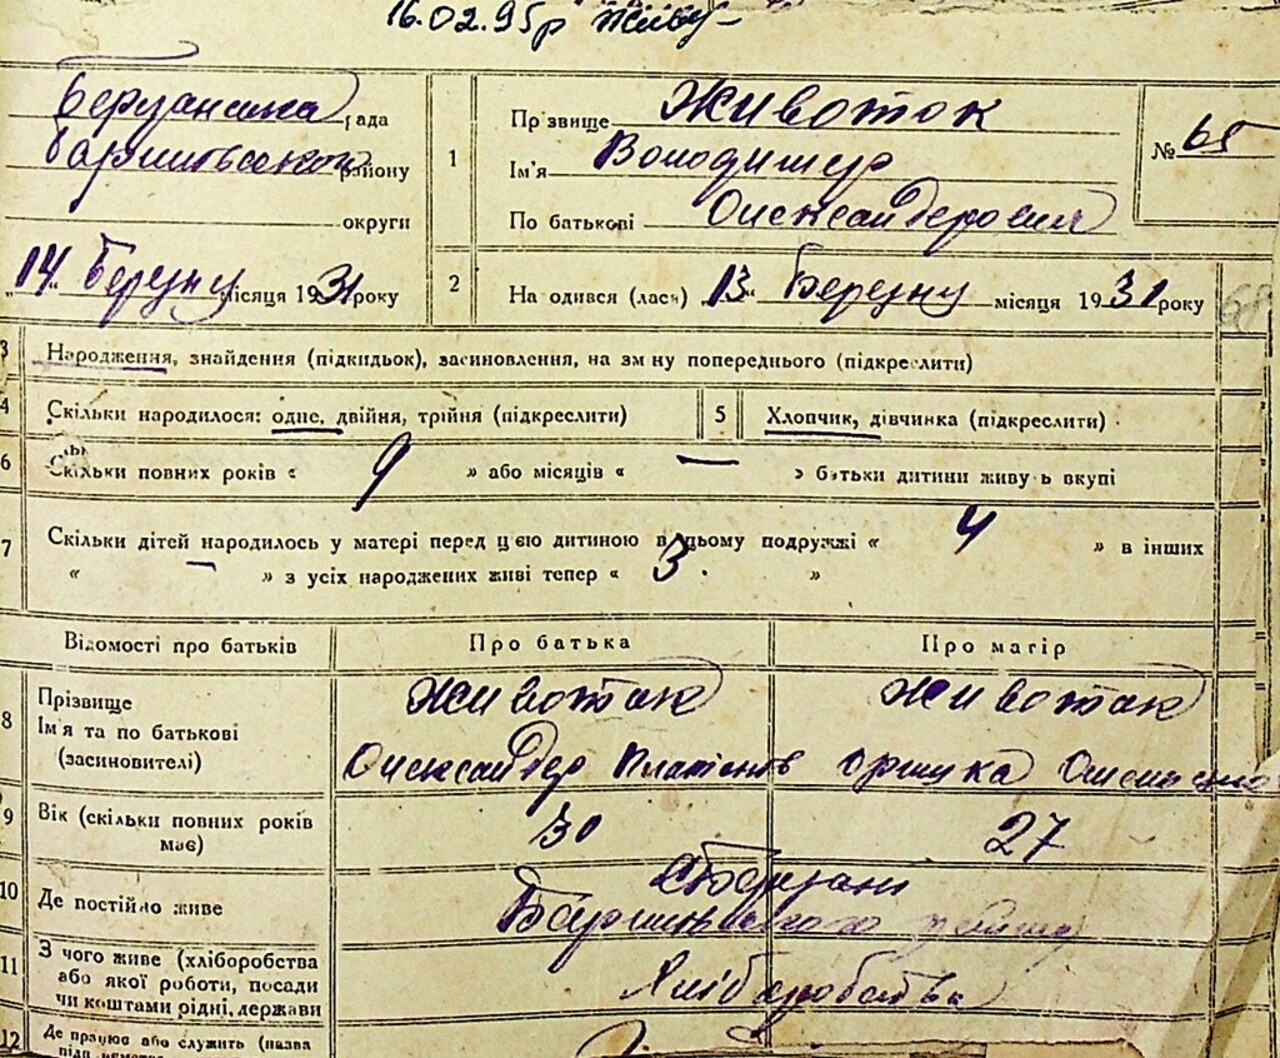 16.02.95р
Березанська рада
Баришівського району
округи
„14“ Березня місяця 1931 року
1
Прізвище Животок
Ім'я Володимер
По батькові Олександерович
№ 65
2
Народився (лася) „13“ Березня місяця 1931 року
68
3 Народження, знайдення (підкидьок), засиновлення, на зміну попереднього (підкреслити)
4 Скільки народилося: одне, двійня, трійня (підкреслити)
5 Хлопчик, дівчинка (підкреслити)
6 Скільки повних років « 9 » або місяців « — » батьки дитини живуть вкупі
7 Скільки дітей народилось у матері перед цією дитиною в цьому подружжі « 4 » в інших
« — » з усіх народжених живі тепер « 3. »
Відомості про батьків
Про батька
Про матір
8 Прізвище
Ім'я та по батькові
(засиновителі)
Животок
Олександер Платонів
Животок
Оришка
9 Вік (скільки повних років
має)
30
27
10 Де постійно живе
с. Березані
Баришівського району
11 З чого живе (хліборобства
або якої роботи, посади
чи коштами рідні, держави
Хліборобства
12 Де працює або служить (назва